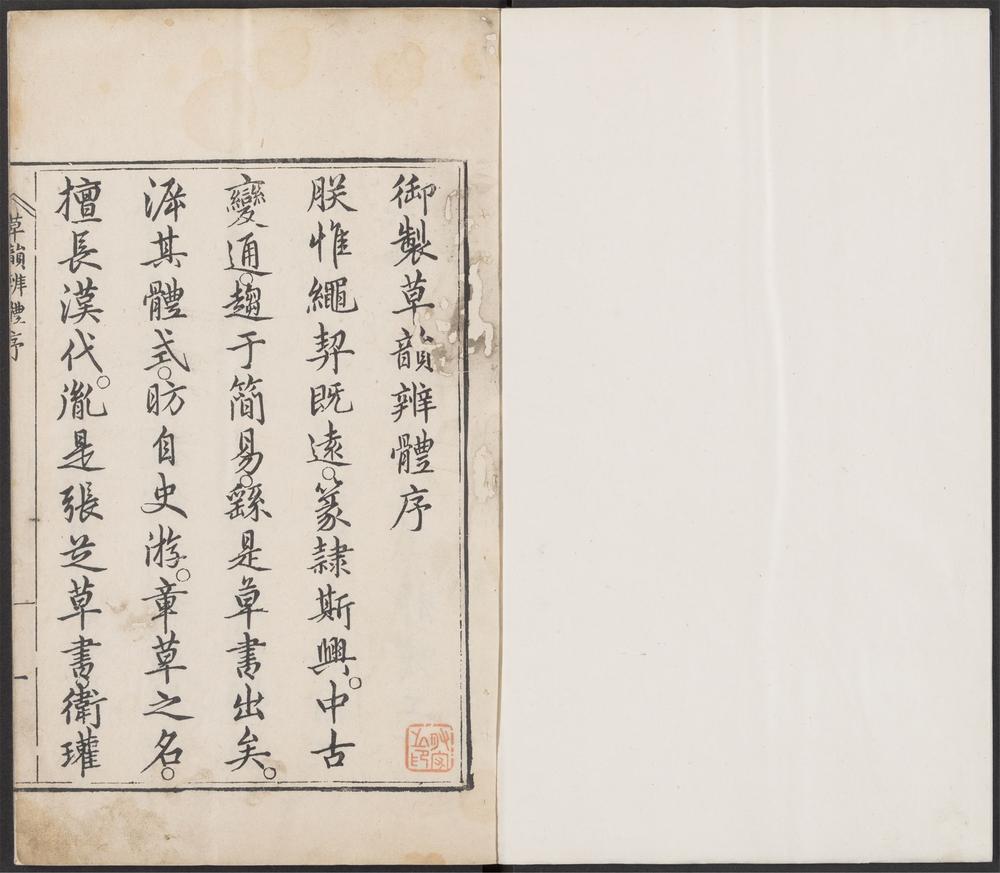 御製草韻辨體序
朕惟繩契既遠。篆隷斯興。中古
變通。趨于簡易。繇是草書出矣。
泝其體式。昉自史游。章草之名。
擅長漢代。胤是張芝草書。衛瓘
草韻辨體序
一